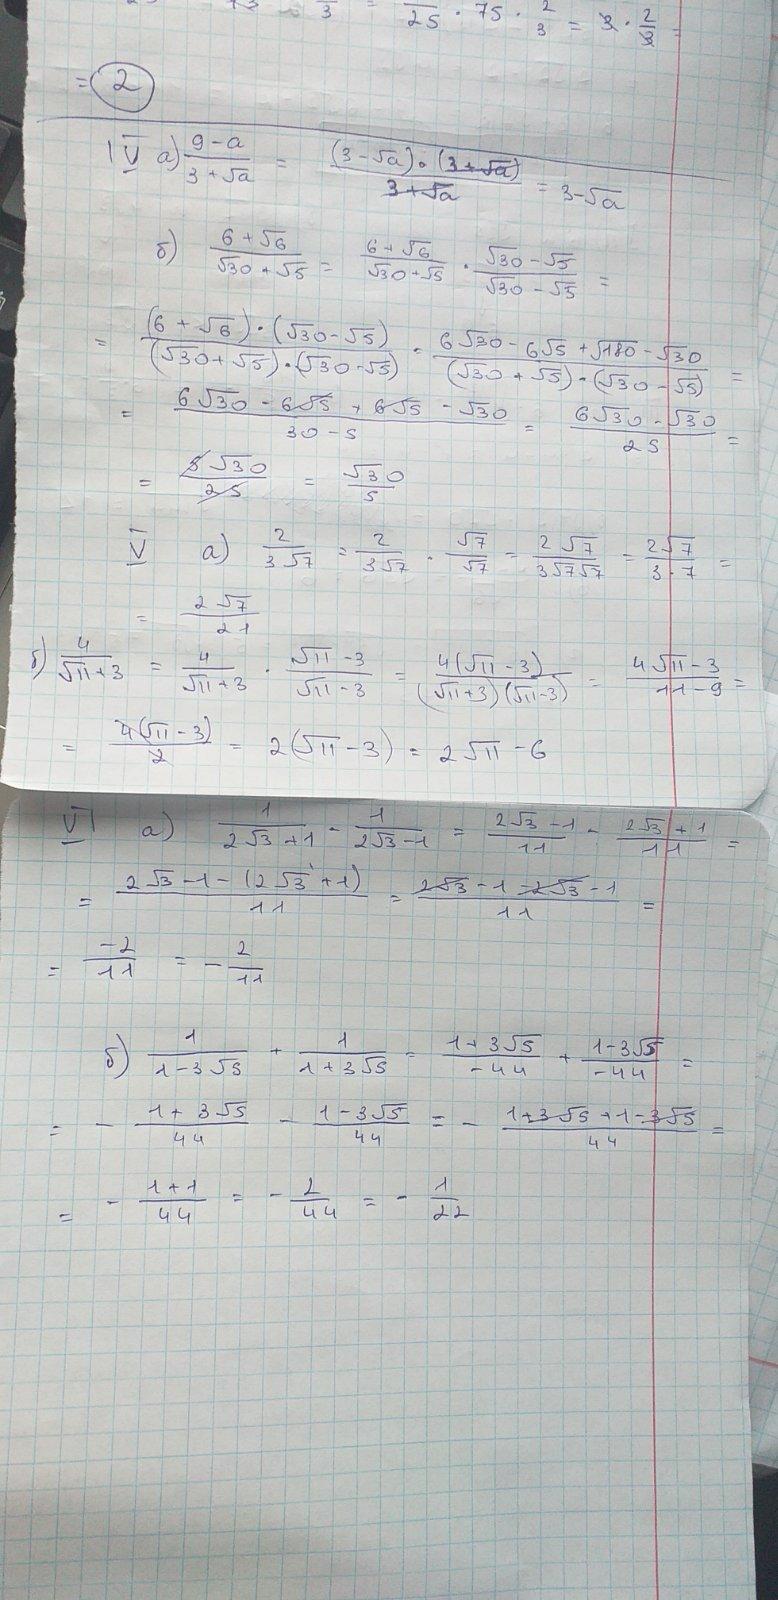 3 = /25 · 75 · 2/3 = 3 · 2/3 =
= 2
IV а) (9-a)/(3+√a) = ((3-√a)·(3+√a))/(3+√a) = 3-√a
б) (6+√6)/(√30+√5) = (6+√6)/(√30+√5) · (√30-√5)/(√30-√5) =
= ((6+√6)·(√30-√5))/((√30+√5)·(√30-√5)) = (6√30-6√5+√180-√30)/((√30+√5)·(√30-√5)) =
= (6√30-6√5+6√5-√30)/(30-5) = (6√30-√30)/25 =
= 5√30/25 = √30/5
V а) 2/(3√7) = 2/(3√7) · √7/√7 = 2√7/(3√7√7) = 2√7/(3·7) =
= 2√7/21
б) 4/(√11+3) = 4/(√11+3) · (√11-3)/(√11-3) = 4(√11-3)/((√11+3)(√11-3)) = (4√11-3)/(11-9) =
= 4(√11-3)/2 = 2(√11-3) = 2√11-6
VI а) 1/(2√3+1) - 1/(2√3-1) = (2√3-1)/11 - (2√3+1)/11 =
= (2√3-1-(2√3+1))/11 = (2√3-1-2√3-1)/11 =
= -2/11 = -2/11
б) 1/(1-3√5) + 1/(1+3√5) = (1+3√5)/-44 + (1-3√5)/-44 =
= -(1+3√5)/44 - (1-3√5)/44 = -(1+3√5+1-3√5)/44 =
= -(1+1)/44 = -2/44 = -1/22